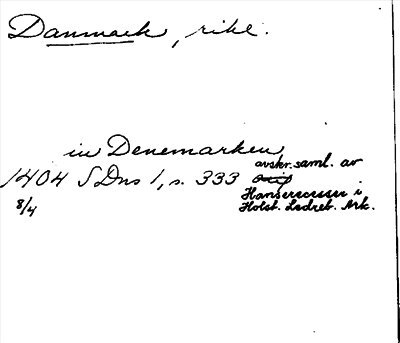 Danmark, rike.
in Denemarken
1404 SDns 1, s. 333 orig avskr. saml. av
8/4 Hanserecesser i
Holst. Ledreb. Ark.